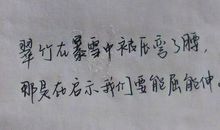 翠竹在暴雪中被压弯了腰,
那是在启示我们要能屈能伸。